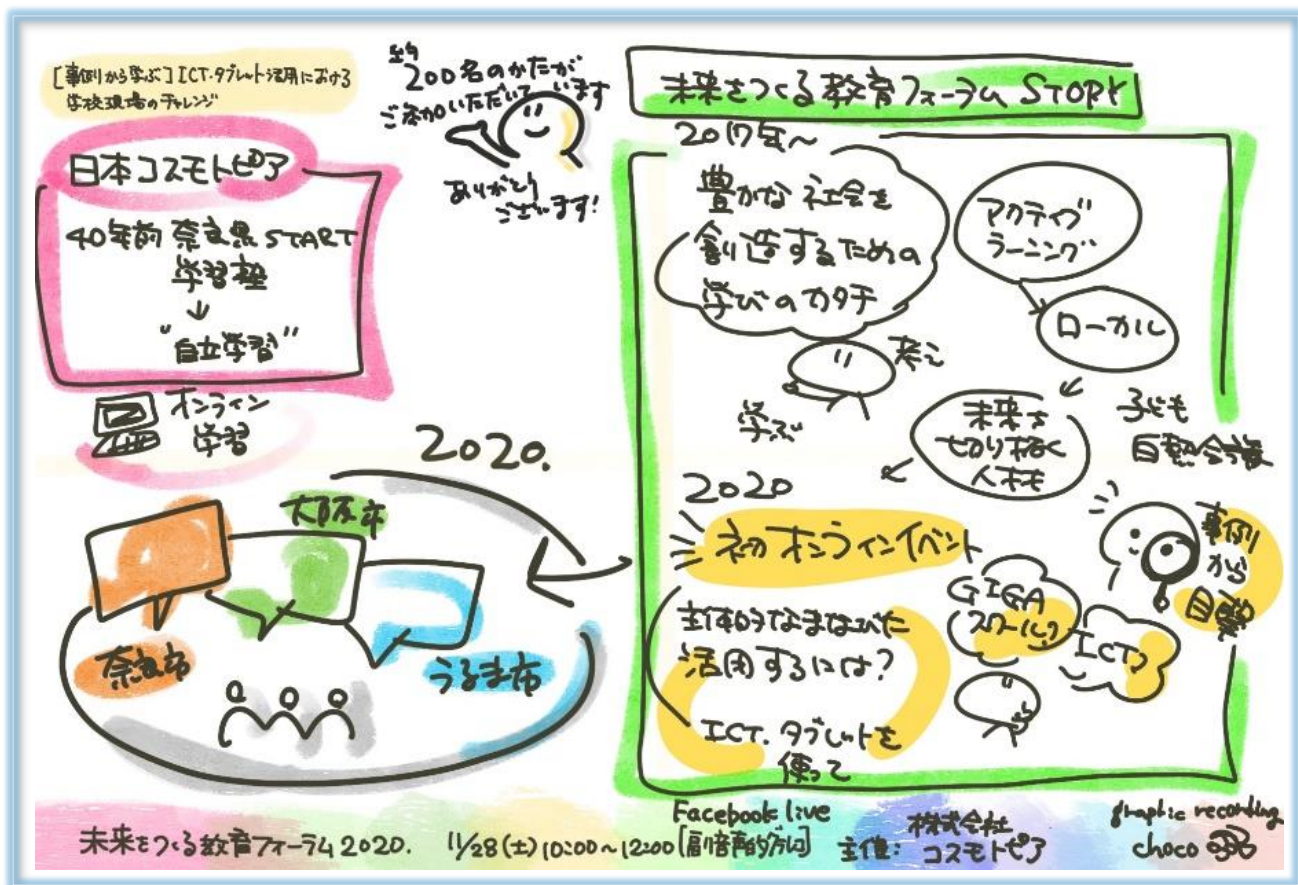 [事例から学ぶ] ICT・タブレット活用における
学校現場のチャレンジ
約
200名のかたが
ご参加いただいています
ありがとう
ございます!
日本コスモトピア
40年前 奈良県 START
学習塾
↓
"自立学習"
オンライン
学習
2020.
大阪市
奈良市
うるま市
未来をつくる教育フォーラム STORY
2017年〜
豊かな社会を
創造するための
学びのカタチ
アクティブ
ラーニング
ローカル
考え
学ぶ
未来を
切り拓く
人材
子ども
白熱会議
2020
初オンラインイベント
主体的なまなびに
活用するには?
ICT.タブレットを
使って
GIGA
スクール?
ICT?
事例
から
未来をつくる教育フォーラム2020.
11/28(土) 10:00〜12:00
Facebook live
[副音声的]
主催:
株式会社
コスモトピア
graphic recording
choco